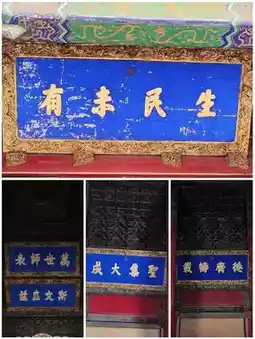 生民未有
萬世師表
斯文在茲
聖集大成
德齊幬載